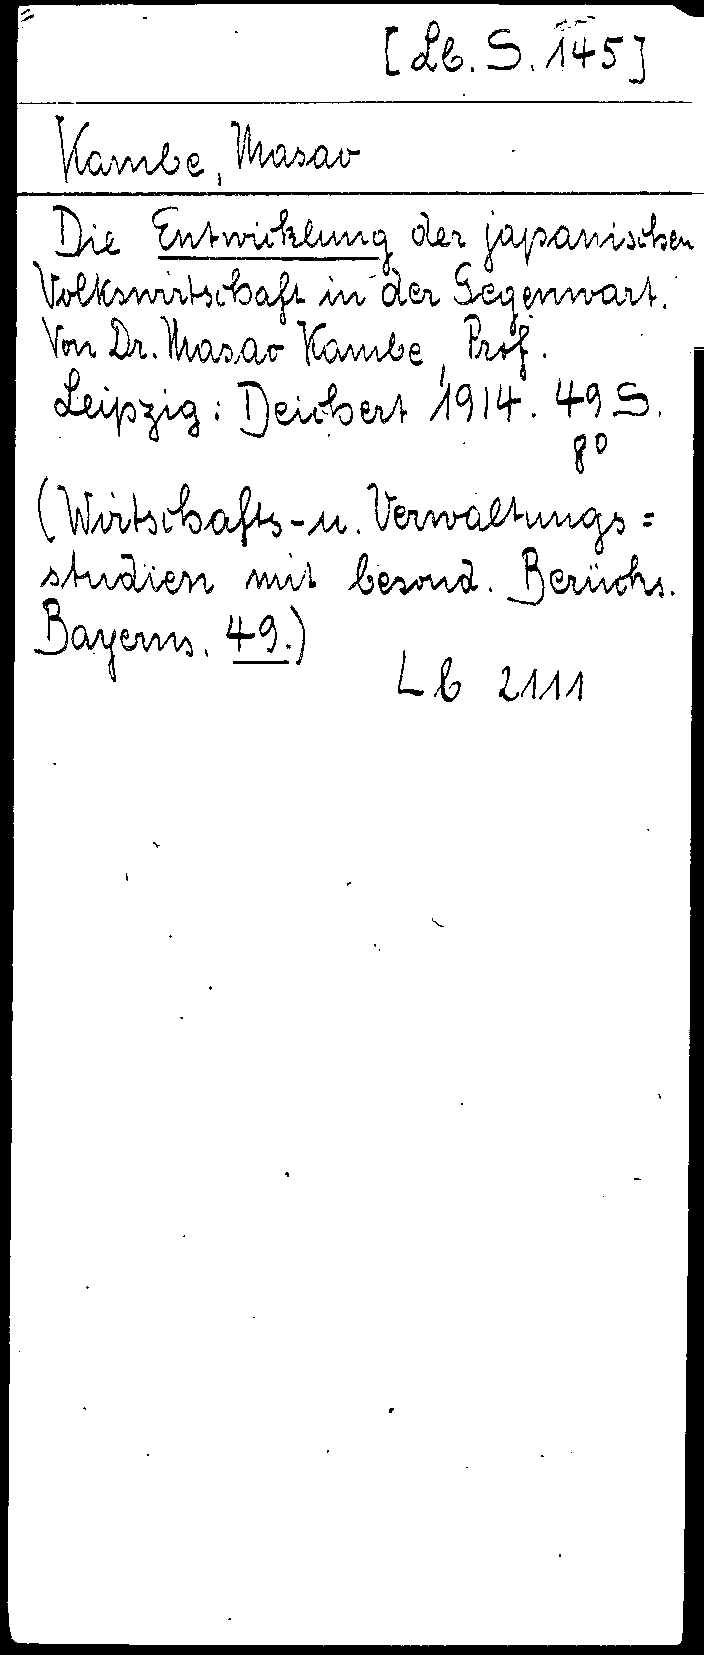 [Lb. S. 145]
Kambe, Masao
Die Entwicklung der japanischen
Volkswirtschaft in der Gegenwart.
Von Dr. Masao Kambe, Prof.
Leipzig: Deichert 1914. 49 S.
8°
(Wirtschafts- u. Verwaltungs=
studien mit besond. Berücks.
Bayerns. 49.)
Lb 2111